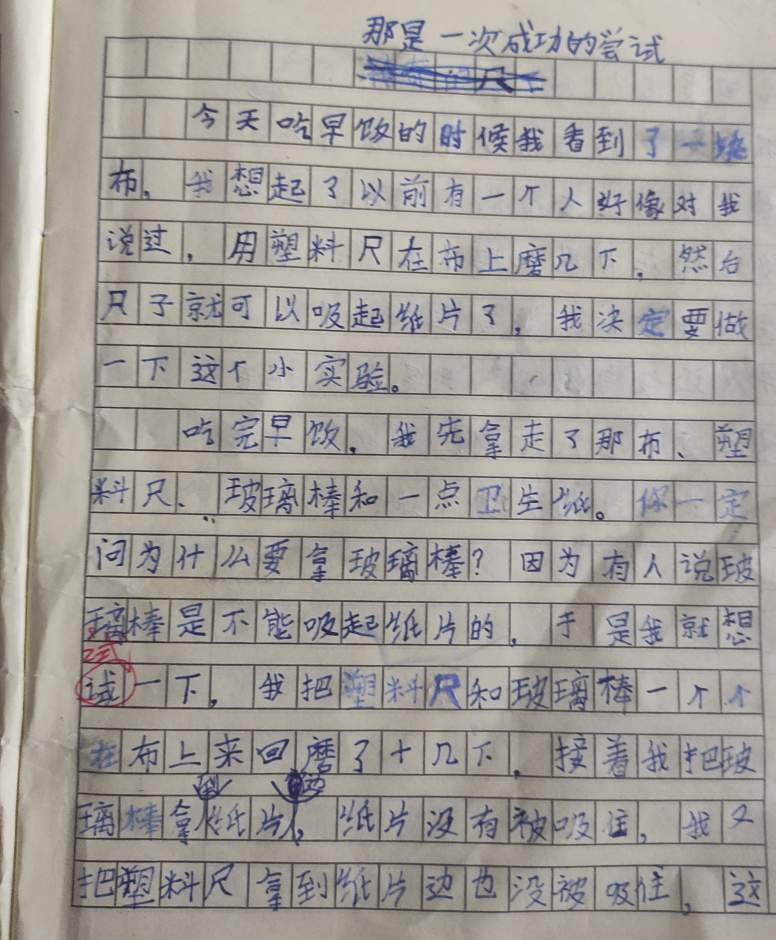 那是一次成功的尝试
今天吃早饭的时候我看到了一块
布、我想起了以前有一个人好像对我
说过，用塑料尺在布上磨几下，然后
尺子就可以吸起纸片了，我决定要做
一下这个小实验。
吃完早饭，我先拿走了那布、塑
料尺、玻璃棒和一点卫生纸。你一定
问为什么要拿玻璃棒？因为有人说玻
璃棒是不能吸起纸片的，于是我就想
试
试一下，我把塑料尺和玻璃棒一个个
在布上来回磨了十几下，接着我把玻
到 边
璃棒拿纸片，纸片没有被吸住，我又
把塑料尺拿到纸片边也没被吸住，这